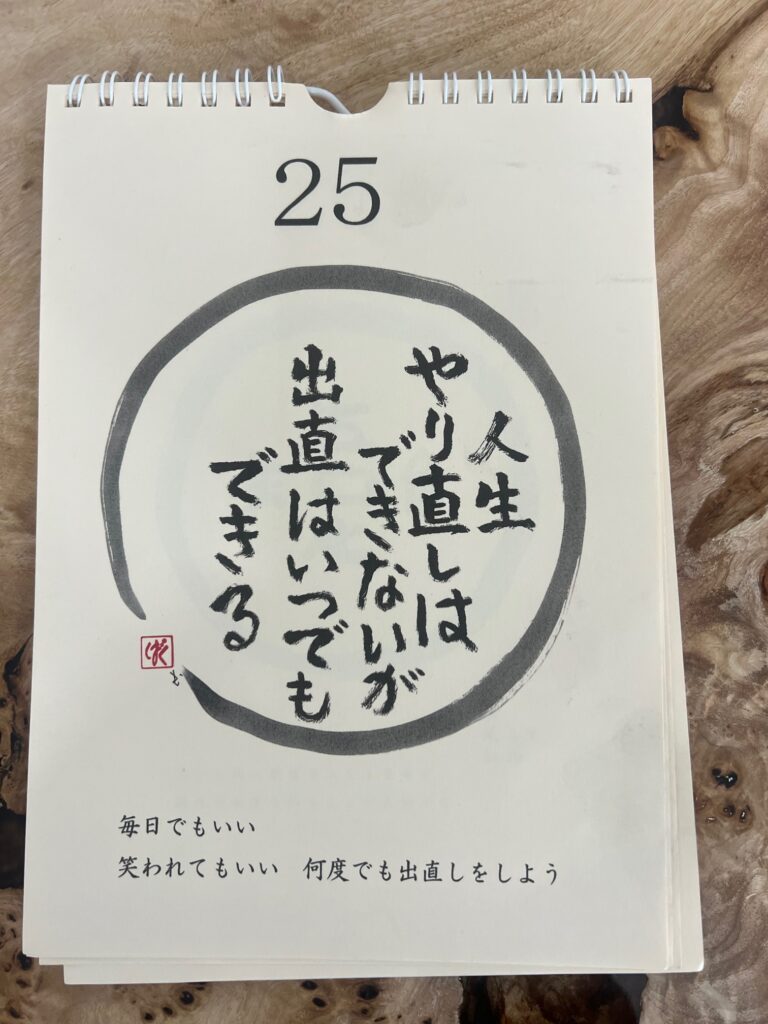 25
人生
やり直しは
できないが
出直はいつでも
できる
毎日でもいい
笑われてもいい　何度でも出直しをしよう